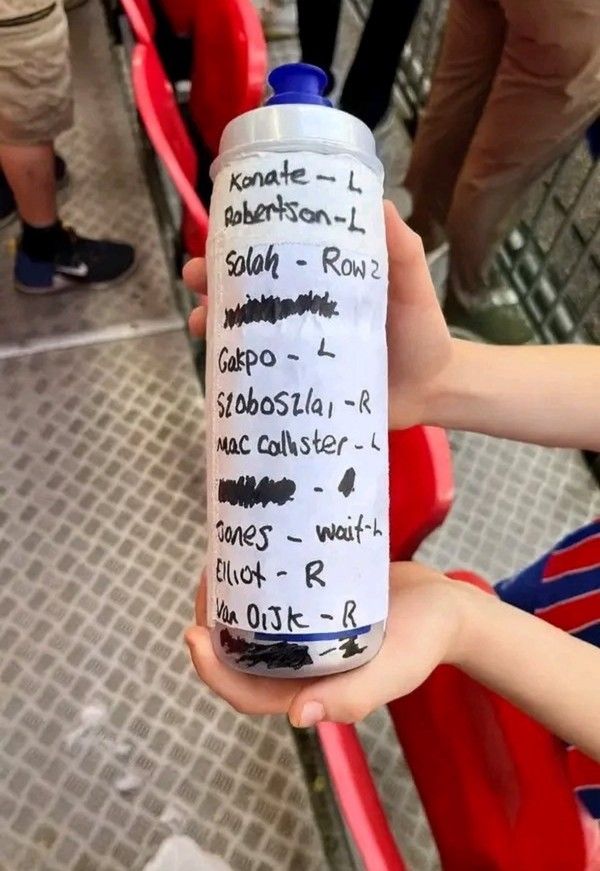 Konate - L
Robertson - L
Salah - Row 2
Gakpo - L
Szoboszlai - R
Mac Callister - L
Jones - wait - L
Elliot - R
Van Dijk - R